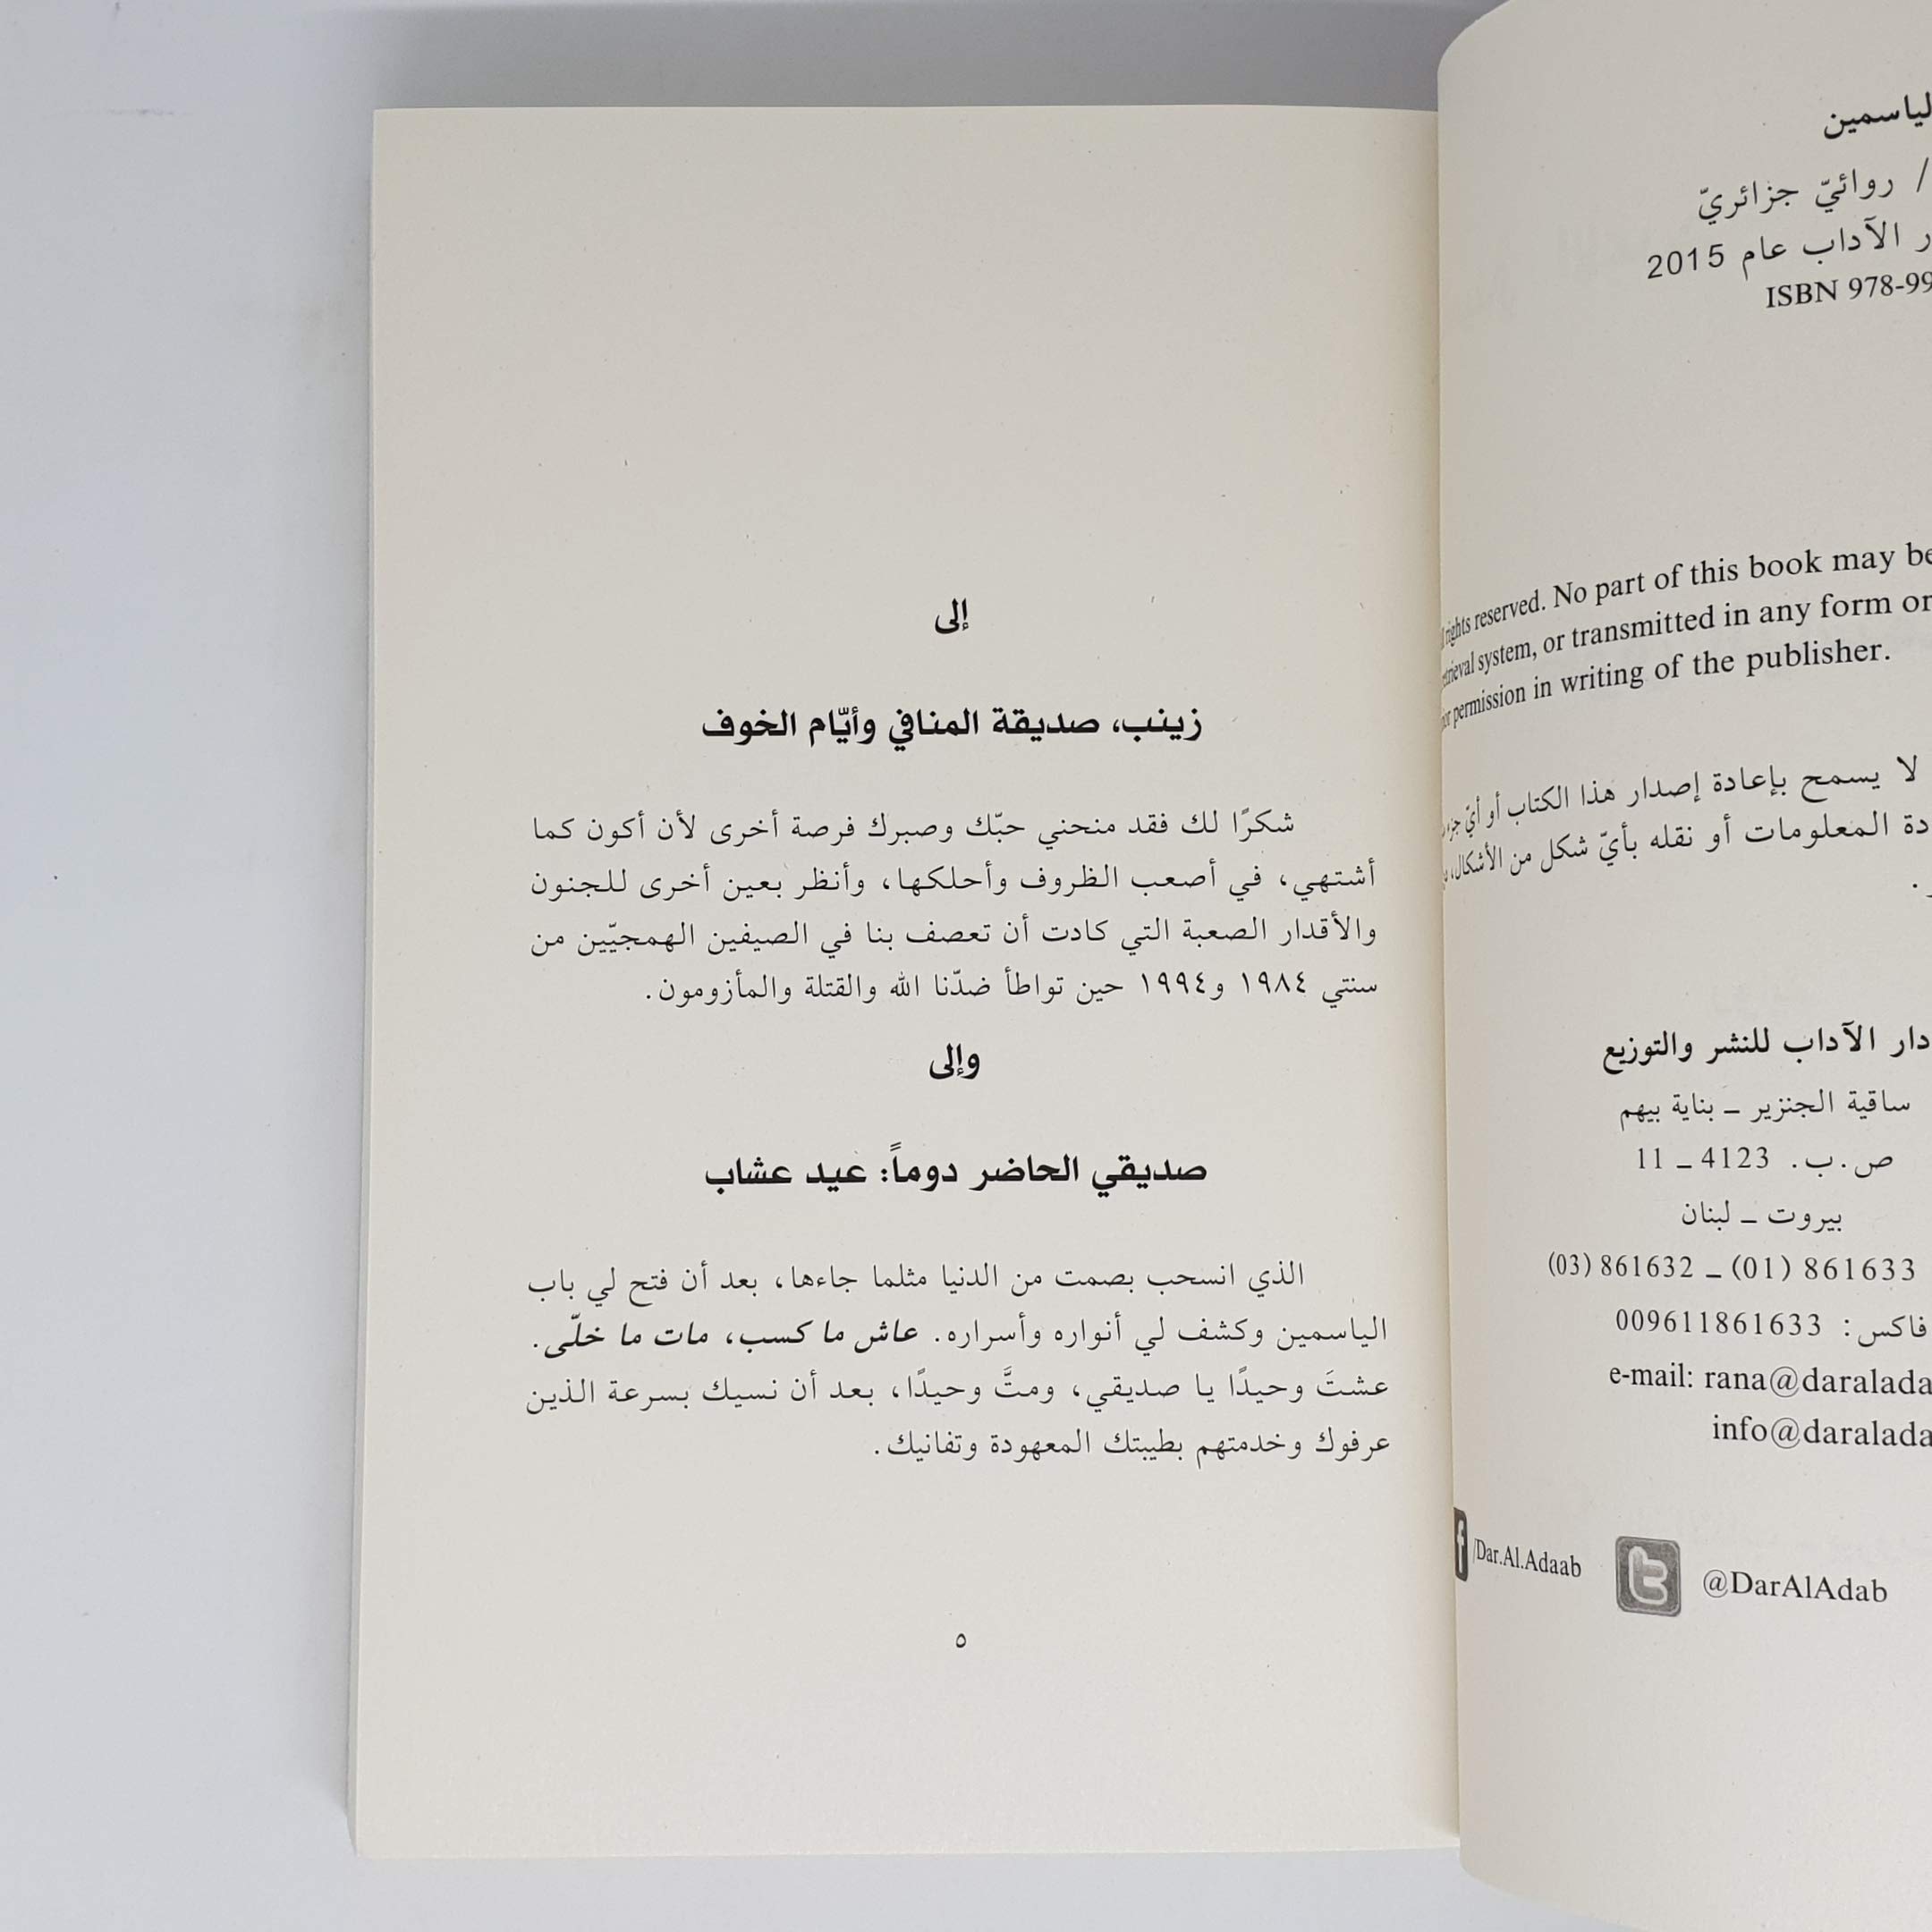 الياسمين
/ روائيّ جزائريّ
الآداب عام 2015
ISBN 978-99
rights reserved. No part of this book may be
system, or transmitted in any form or
permission in writing of the publisher.
لا يسمح بإعادة إصدار هذا الكتاب أو أيّ
المعلومات أو نقله بأيّ شكل من الأشكال،
دار الآداب للنشر والتوزيع
ساقية الجنزير – بناية بيهم
ص.ب. 4123 – 11
بيروت – لبنان
(03) 861632 – (01) 861633
فاكس: 009611861633
e-mail: rana@daralada
info@daralada
/Dar.Al.Adaab
@DarAlAdab
إلى
زينب، صديقة المنافي وأيّام الخوف
شكرًا لك فقد منحني حبّك وصبرك فرصة أخرى لأن أكون كما
أشتهي، في أصعب الظروف وأحلكها، وأنظر بعين أخرى للجنون
والأقدار الصعبة التي كادت أن تعصف بنا في الصيفين الهمجيّين من
سنتي ١٩٨٤ و١٩٩٤ حين تواطأ ضدّنا الله والقتلة والمأزومون.
وإلى
صديقي الحاضر دوماً: عيد عشاب
الذي انسحب بصمت من الدنيا مثلما جاءها، بعد أن فتح لي باب
الياسمين وكشف لي أنواره وأسراره. عاش ما كسب، مات ما خلّى.
عشتَ وحيدًا يا صديقي، ومتَّ وحيدًا، بعد أن نسيك بسرعة الذين
عرفوك وخدمتهم بطيبتك المعهودة وتفانيك.
٥